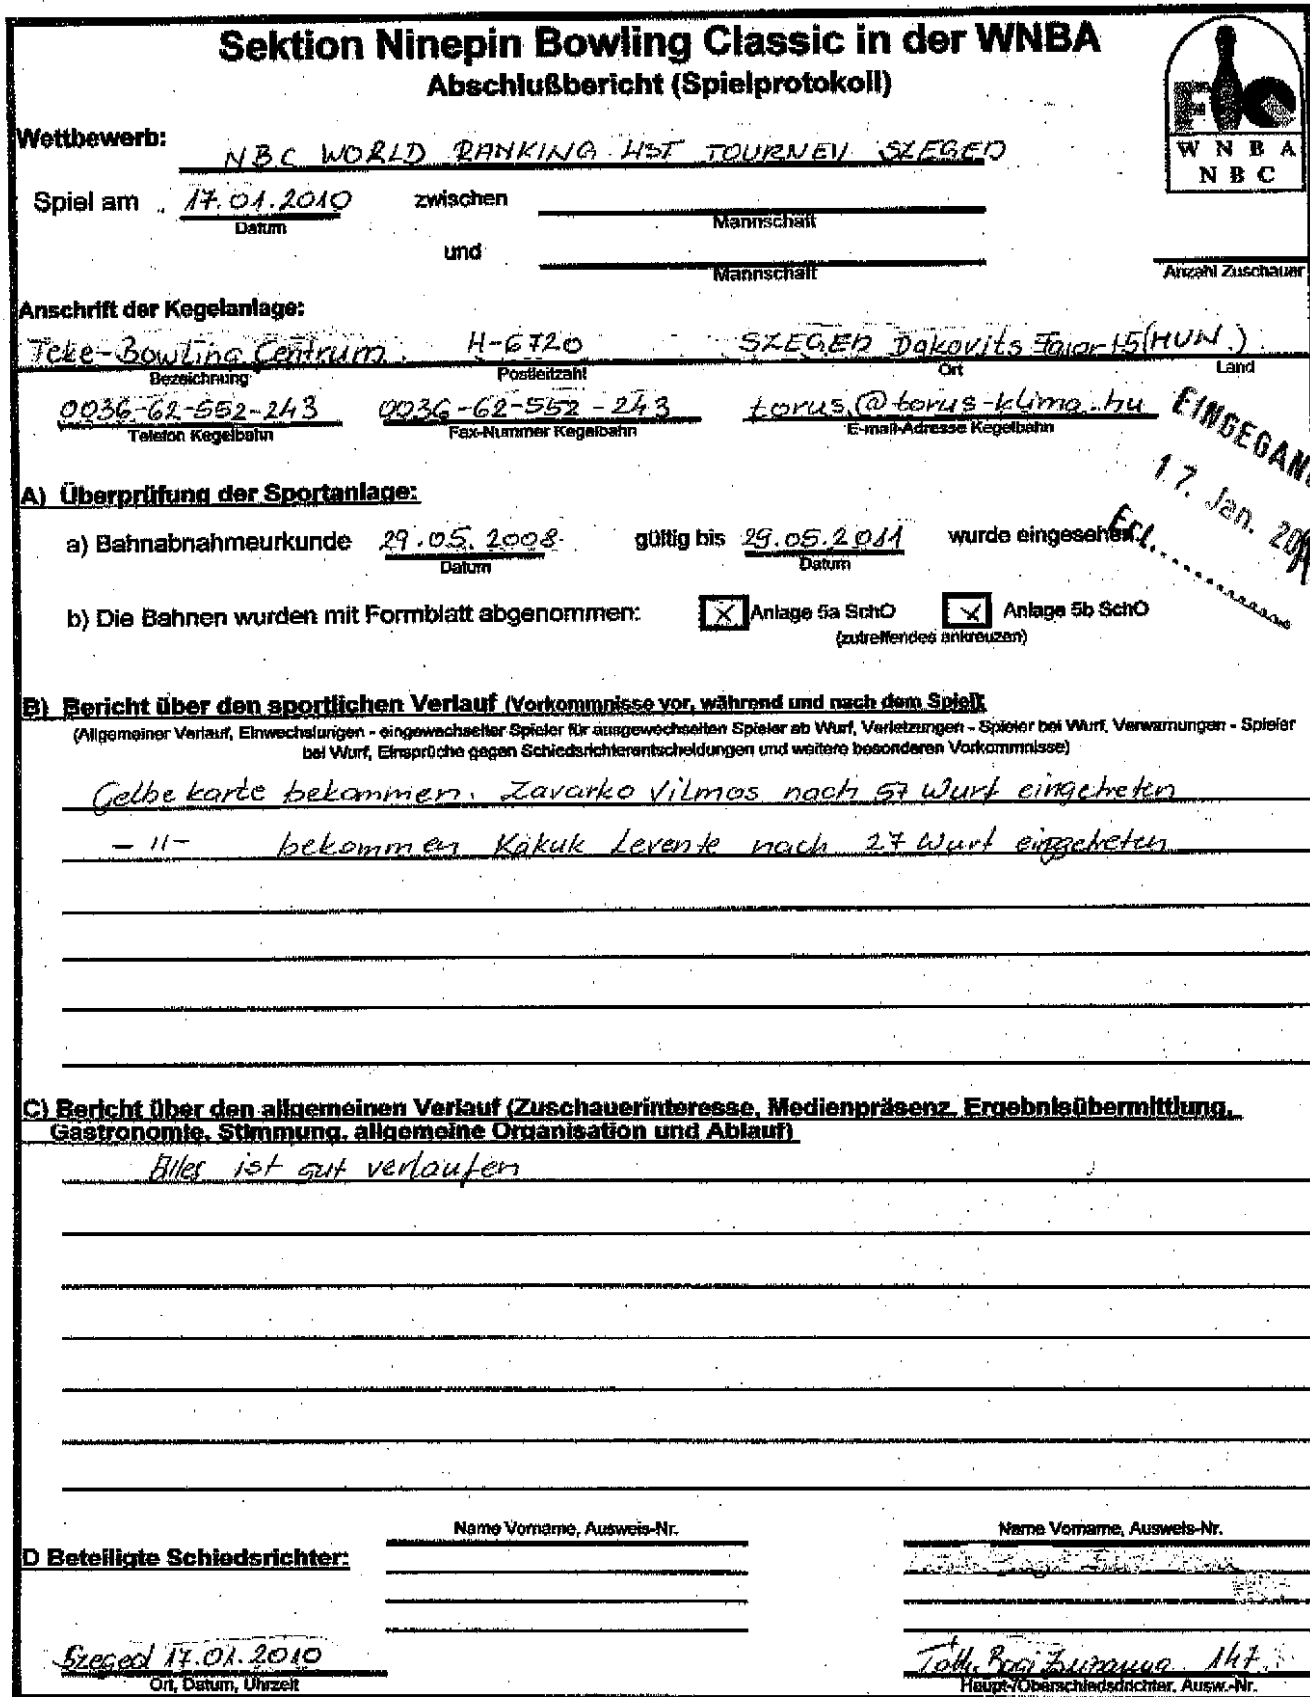 Sektion Ninepin Bowling Classic in der WNBA
Abschlußbericht (Spielprotokoll)
WNBA
NBC
Wettbewerb: NBC WORLD RANKING LIST TOURNEY SZEGED
Spiel am 17.01.2010 zwischen
Datum Mannschaft
und
Mannschaft Anzahl Zuschauer
Anschrift der Kegelanlage:
Teke-Bowling Centrum H-6720 SZEGED (HUN.)
Bezeichnung Postleitzahl Ort Land
0036-62-552-243 0036-62-552-243 torus@torus-klima.hu
Telefon Kegelbahn Fax-Nummer Kegelbahn E-mail-Adresse Kegelbahn
EINGEGANG
17. Jan. 20
Erl.
A) Überprüfung der Sportanlage:
a) Bahnabnahmeurkunde 29.05.2008 gültig bis 29.05.2011 wurde eingesehen
Datum Datum
b) Die Bahnen wurden mit Formblatt abgenommen: X Anlage 5a SchO X Anlage 5b SchO
(zutreffendes ankreuzen)
B) Bericht über den sportlichen Verlauf (Vorkommnisse vor, während und nach dem Spiel):
(Allgemeiner Verlauf, Einwechslungen - eingewechselter Spieler für ausgewechselten Spieler ab Wurf, Verletzungen - Spieler bei Wurf, Verwarnungen - Spieler
bei Wurf, Einsprüche gegen Schiedsrichterentscheidungen und weitere besonderen Vorkommnisse)
Gelbe karte bekommen. Zavarko Vilmos nach 57 Wurf eingetreten
- 11 - bekommen Kákuk Levente nach 27 Wurf eingetreten
C) Bericht über den allgemeinen Verlauf (Zuschauerinteresse, Medienpräsenz, Ergebnisübermittlung,
Gastronomie, Stimmung, allgemeine Organisation und Ablauf)
Alles ist gut verlaufen
Name Vorname, Ausweis-Nr. Name Vorname, Ausweis-Nr.
D Beteiligte Schiedsrichter:
Szeged 17.01.2010 Tóth 147
Ort, Datum, Uhrzeit Haupt-/Oberschiedsrichter, Ausw.-Nr.